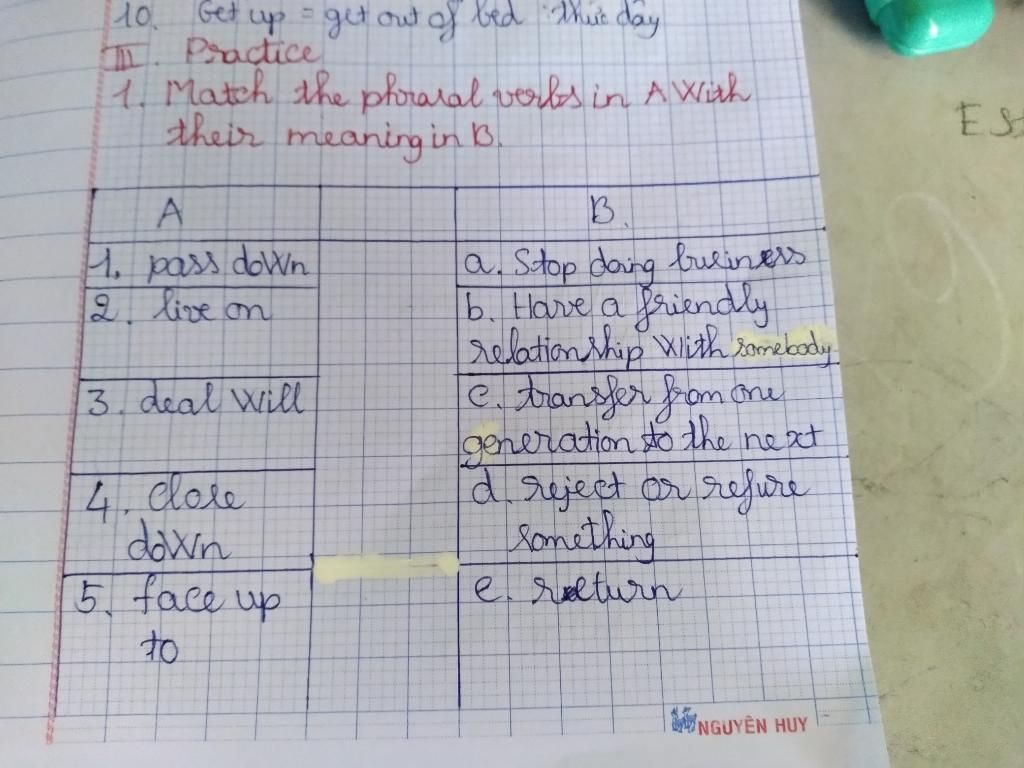 10. Get up = get out of bed : thức dậy
III. Practice
1. Match the phrasal verbs in A with
their meaning in B.
A
B.
1. pass down
a. Stop doing business
2. live on
b. Have a friendly
relationship with somebody
3. deal will
c. transfer from one
generation to the next
4. close
down
d. reject or refure
something
5. face up
to
e. return
NGUYÊN HUY
ES